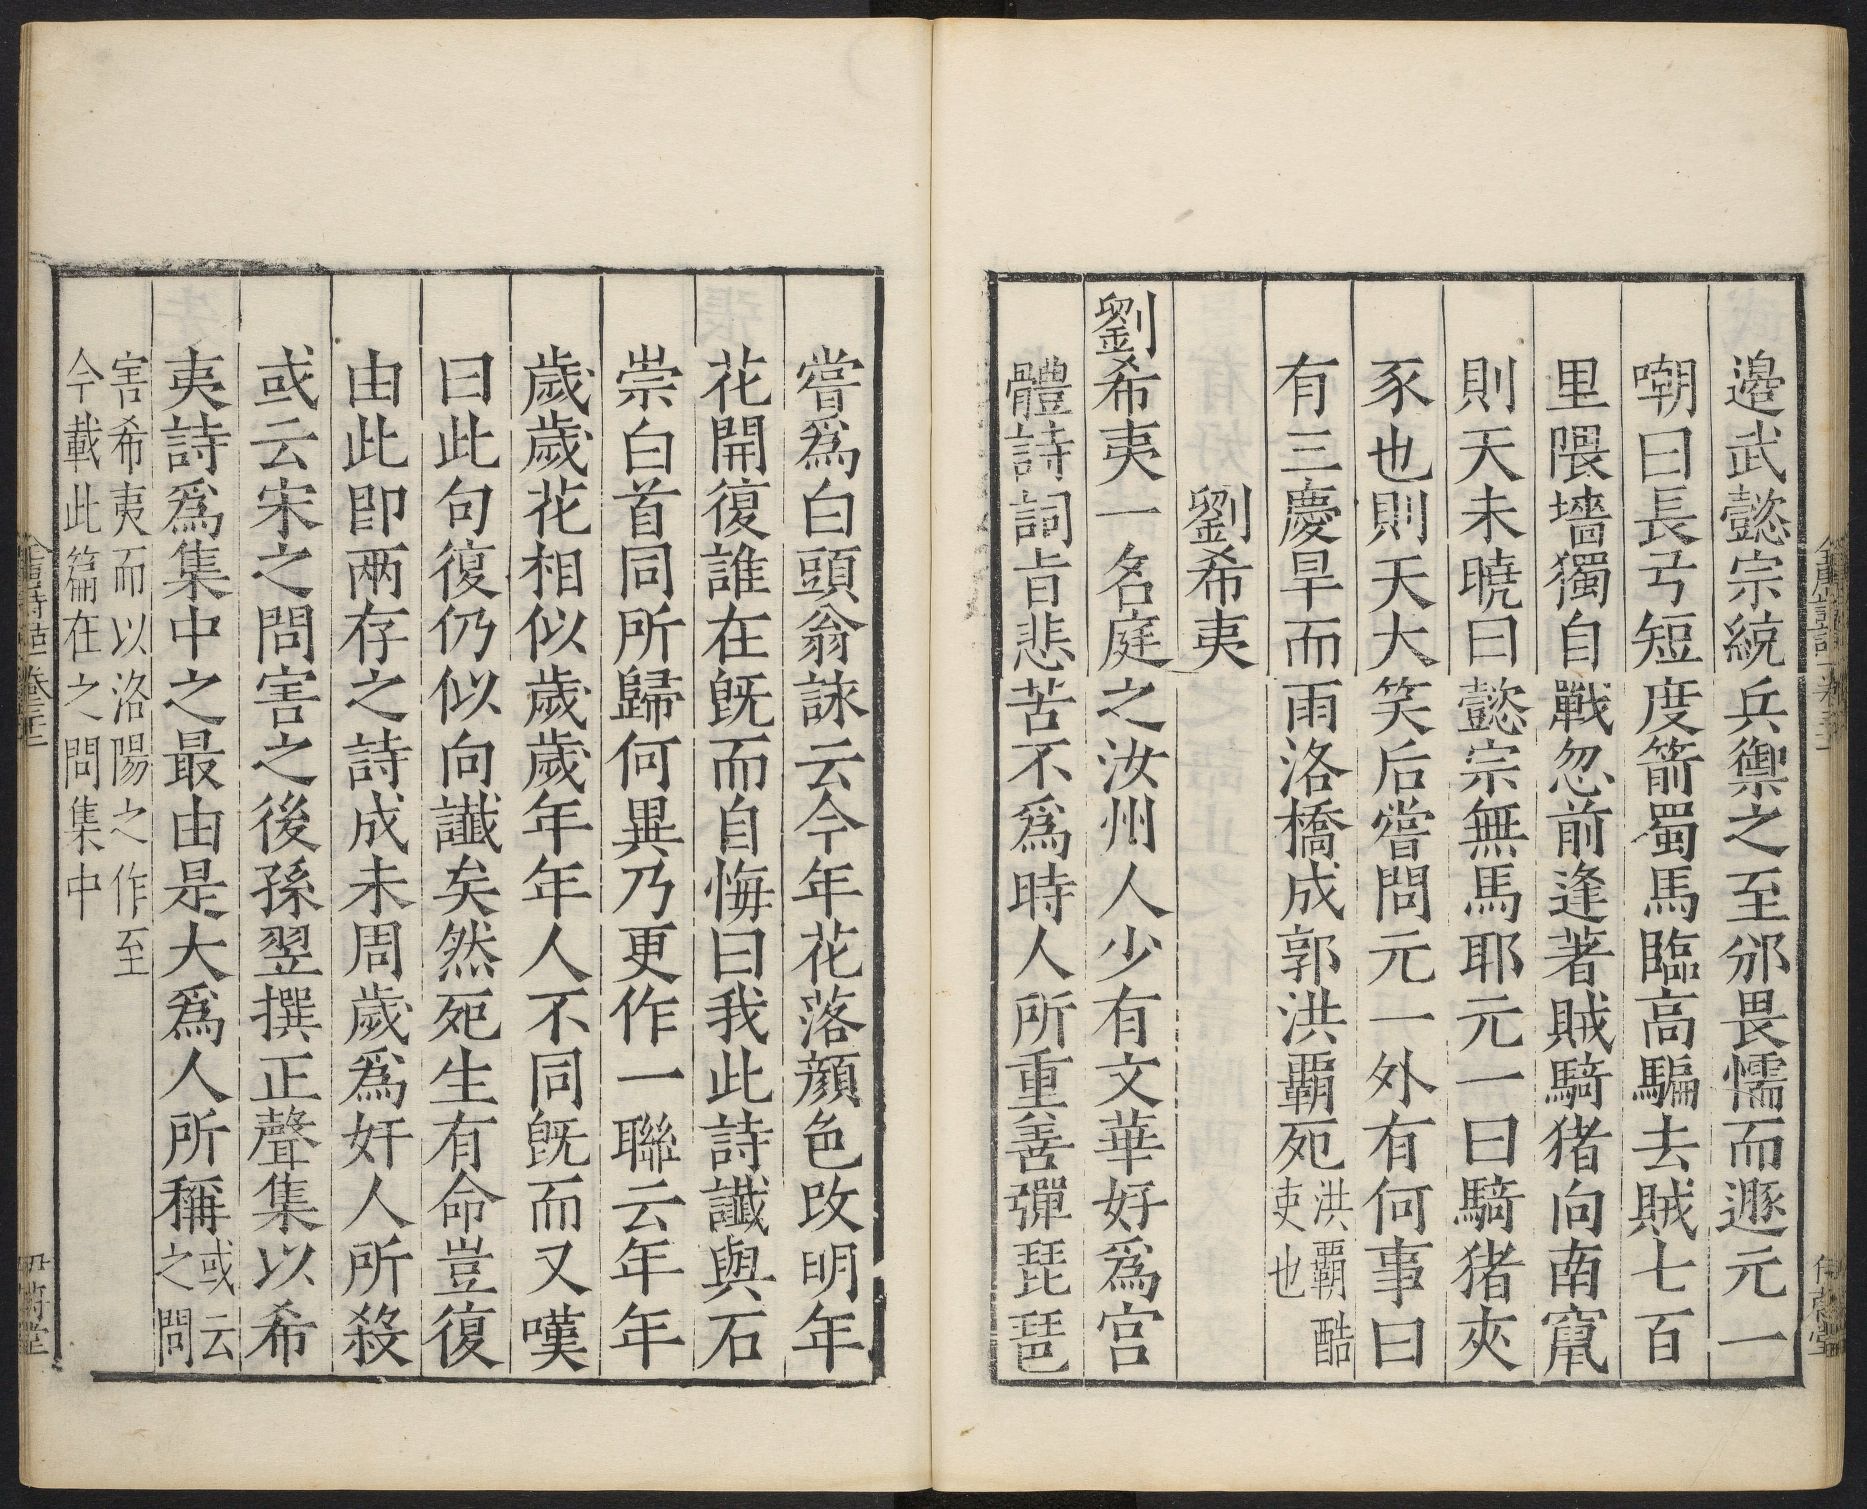 邉武懿宗統兵禦之至邠畏懦而遯元一
嘲曰長弓短度箭蜀馬臨高騙去賊七百
里隈墻獨自戰忽前逢著賊騎猪向南竄
則天未曉曰懿宗無馬耶元一曰騎猪夾
豕也則天大笑后嘗問元一外有何事曰
有三慶旱而雨洛橋成郭洪覇死洪覇酷
吏也
劉希夷
劉希夷一名庭之汝州人少有文華好爲宫
體詩詞旨悲苦不爲時人所重善彈琵琶
嘗爲白頭翁詠云今年花落顔色改明年
花開復誰在既而自悔曰我此詩讖與石
崇白首同所歸何異乃更作一聯云年年
歲歲花相似歲歲年年人不同既而又嘆
曰此句復仍似向讖矣然死生有命豈復
由此即两存之詩成未周歲爲奸人所殺
或云宋之問害之後孫翌撰正聲集以希
夷詩爲集中之最由是大爲人所稱或云
之問
害希夷而以洛陽之作至
今載此篇在之問集中